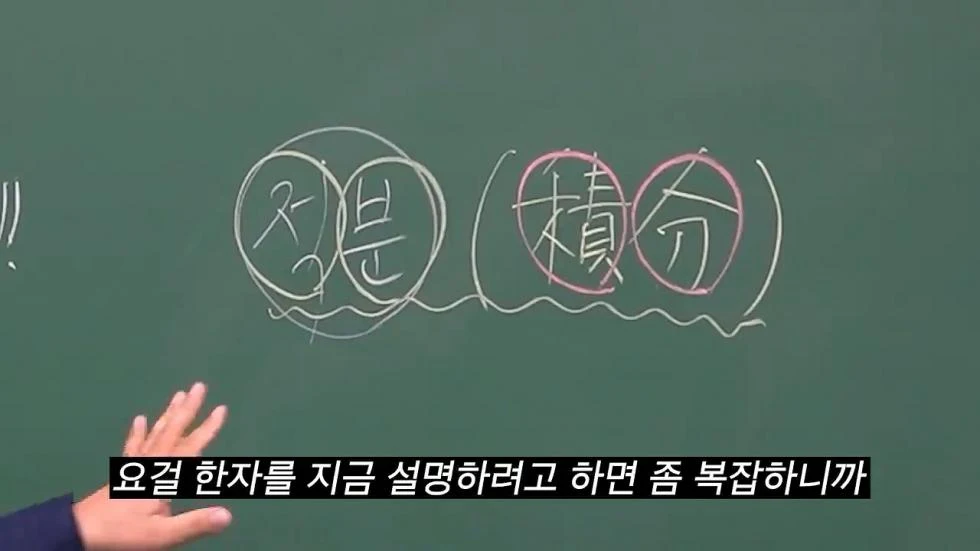 !!
적분 (積分)
요걸 한자를 지금 설명하려고 하면 좀 복잡하니까